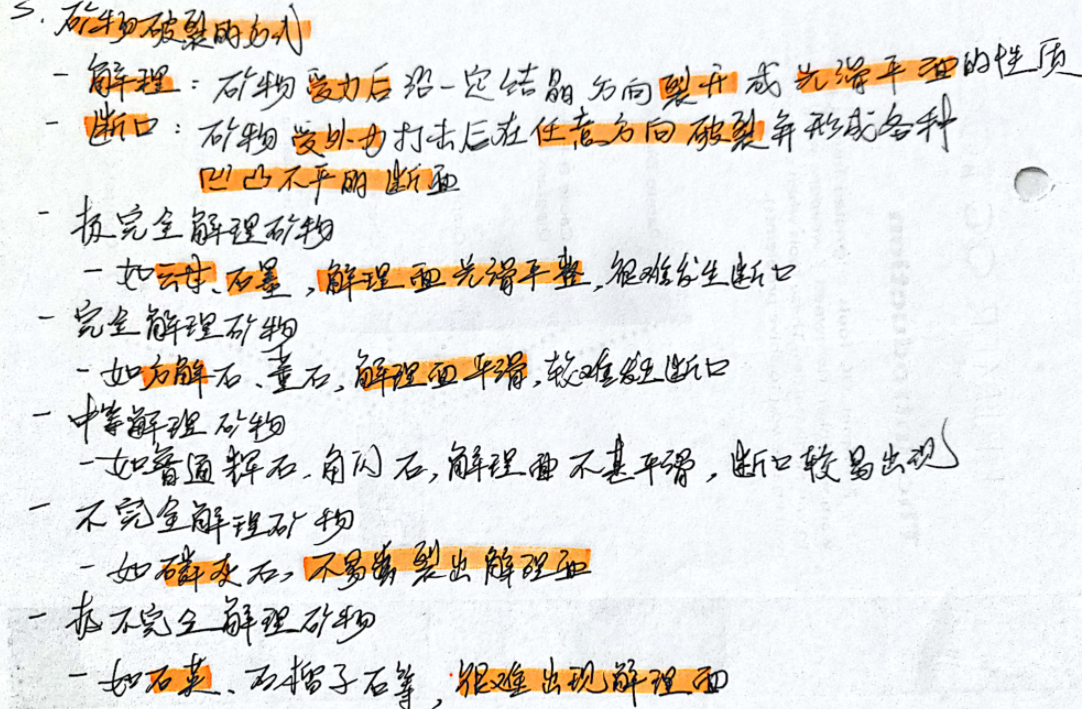 5. 矿物破裂的方式
- 解理：矿物受力后沿一定结晶方向裂开成光滑平面的性质
- 断口：矿物受外力打击后在任意方向破裂并形成各种
凹凸不平的断面
- 极完全解理矿物
- 如云母、石墨，解理面光滑平整，很难发生断口
- 完全解理矿物
- 如方解石、萤石，解理面平滑，较难发生断口
- 中等解理矿物
- 如普通辉石、角闪石，解理面不甚平滑，断口较易出现
- 不完全解理矿物
- 如磷灰石，不易裂出解理面
- 极不完全解理矿物
- 如石英、石榴子石等，很难出现解理面